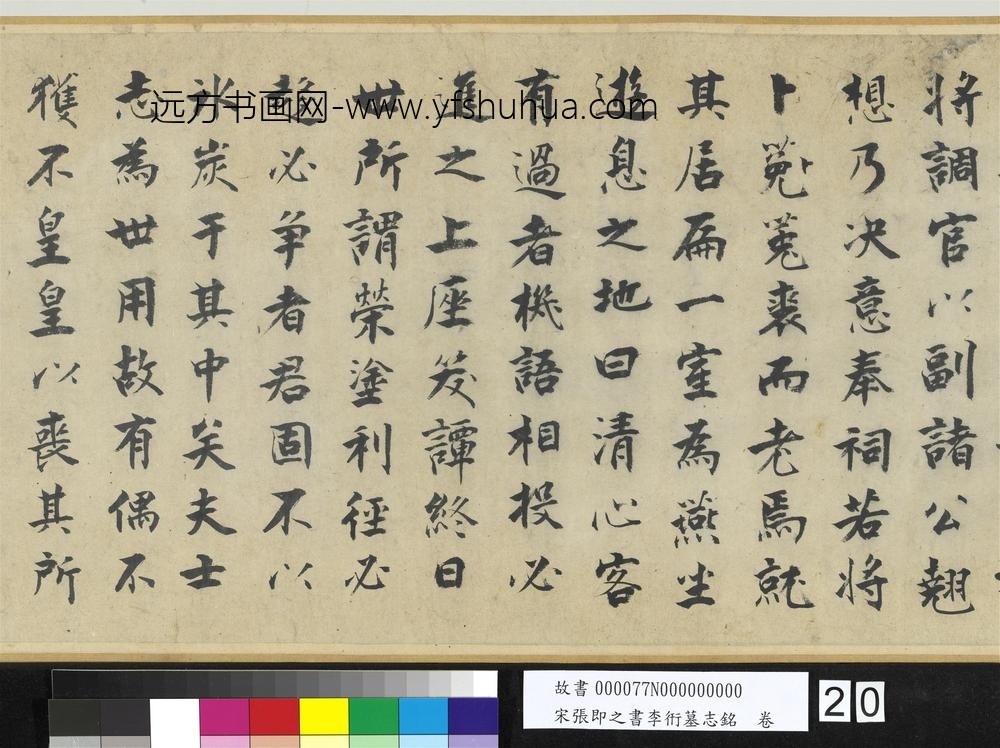 將調官以副諸公翹
想乃決意奉祠若將
卜菟裘而老焉就
其居扁一室為燕坐
遊息之地曰清心客
有過者機語相投必
進之上座笑譚終日
世所謂榮塗利徑必
趨必争者君固不以
冰炭于其中矣夫士
志為世用故有偶不
獲不皇皇以喪其所
远方书画网-www.yfshuhua.com
故書 000077N000000000
宋張即之書李衎墓志銘 卷
20